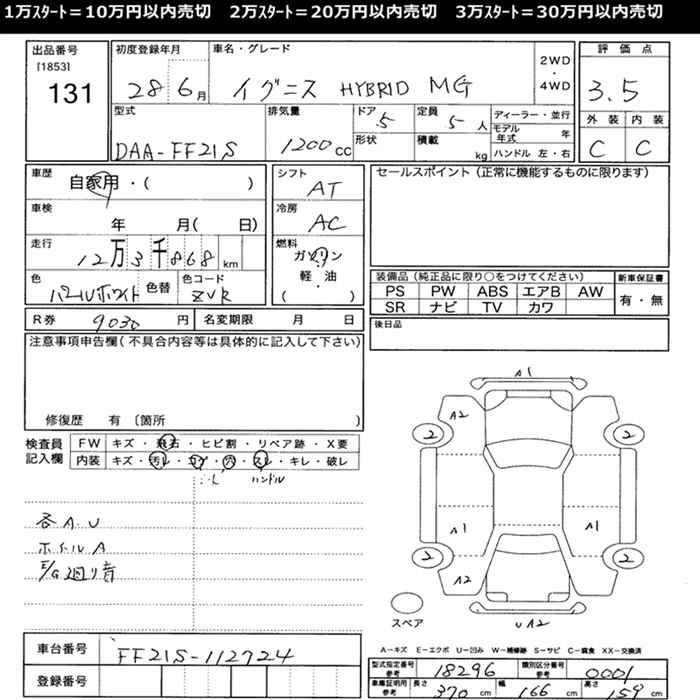 1万ｽﾀｰﾄ＝10万円以内売切　2万ｽﾀｰﾄ＝20万円以内売切　3万ｽﾀｰﾄ＝30万円以内売切
出品番号
[1853]
131
初度登録年月
28 6月
車名・グレード
イグニス HYBRID MG
2WD
・
4WD
評価点
3.5
外装 内装
C C
型式
DAA-FF21S
排気量
1200cc
ドア
5
形状
定員
5人
積載
kg
ディーラー・並行
モデル年式 年
ハンドル 左・右
車歴
自家用・( )
車検
年 月( 日)
走行
12万3千868km
色
パールホワイト
色替
色コード
ZVR
シフト
AT
冷房
AC
燃料
ガソリン
・
軽・油
( )
セールスポイント（正常に機能するものに限ります）
装備品（純正品に限り○をつけてください）
PS PW ABS エアB AW
SR ナビ TV カワ
新車保証書
有・無
R券 9030円
名変期限 月 日
後日品
注意事項申告欄（不具合内容等は具体的に記入して下さい）
修復歴 有 〔箇所 〕
検査員
記入欄
FW キズ・飛石・ヒビ割・リペア跡・X要
内装 キズ・汚レ・コゲ・穴・スレ・キレ・破レ
ハンドル
各A.U
ホイールA
E/G廻り音
A1
A2
2
2
A1
A1
2
2
A2
UA2
スペア
A－キズ E－エクボ U－凹み W－補修跡 S－サビ C－腐食 XX－交換済
車台番号
FF21S-112724
登録番号
型式指定番号
参考
18296
類別区分番号
参考
0001
車庫証明用
参考
長さ
370cm
幅
166cm
高さ
159cm